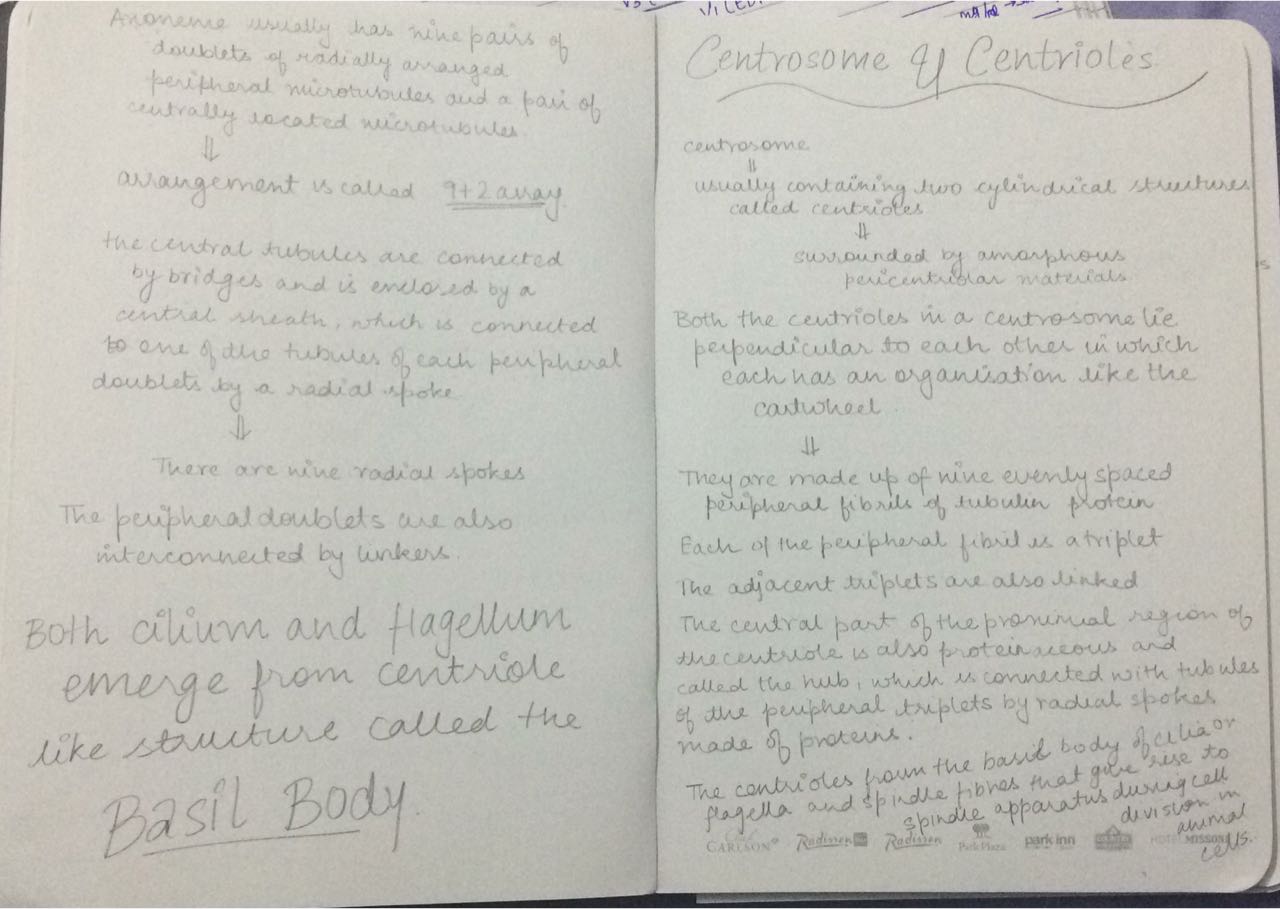 Axoneme usually has nine pairs of
doublets of radially arranged
peripheral microtubules and a pair of
centrally located microtubules.
⇓
arrangement is called 9+2 array.
the central tubules are connected
by bridges and is enclosed by a
central sheath, which is connected
to one of the tubules of each peripheral
doublets by a radial spoke
⇓
There are nine radial spokes
The peripheral doublets are also
interconnected by linkers.
Both cilium and flagellum
emerge from centriole
like structure called the
Basil Body.
Centrosome & Centrioles
centrosome
usually containing two cylindrical structures
called centrioles
⇓
surrounded by amorphous
pericentriolar materials
Both the centrioles in a centrosome lie
perpendicular to each other in which
each has an organisation like the
cartwheel.
⇓
They are made up of nine evenly spaced
peripheral fibrils of tubulin protein
Each of the peripheral fibril is a triplet
The adjacent triplets are also linked
The central part of the proximal region of
the centriole is also proteinaceous and
called the hub, which is connected with tubules
of the peripheral triplets by radial spokes
made of proteins.
The centrioles from the basil body of cilia or
flagella and spindle fibres that give rise to
spindle apparatus during cell
division in
animal
cells.
CARLSON Radisson Radisson Park Plaza park inn HOTEL MISSONI